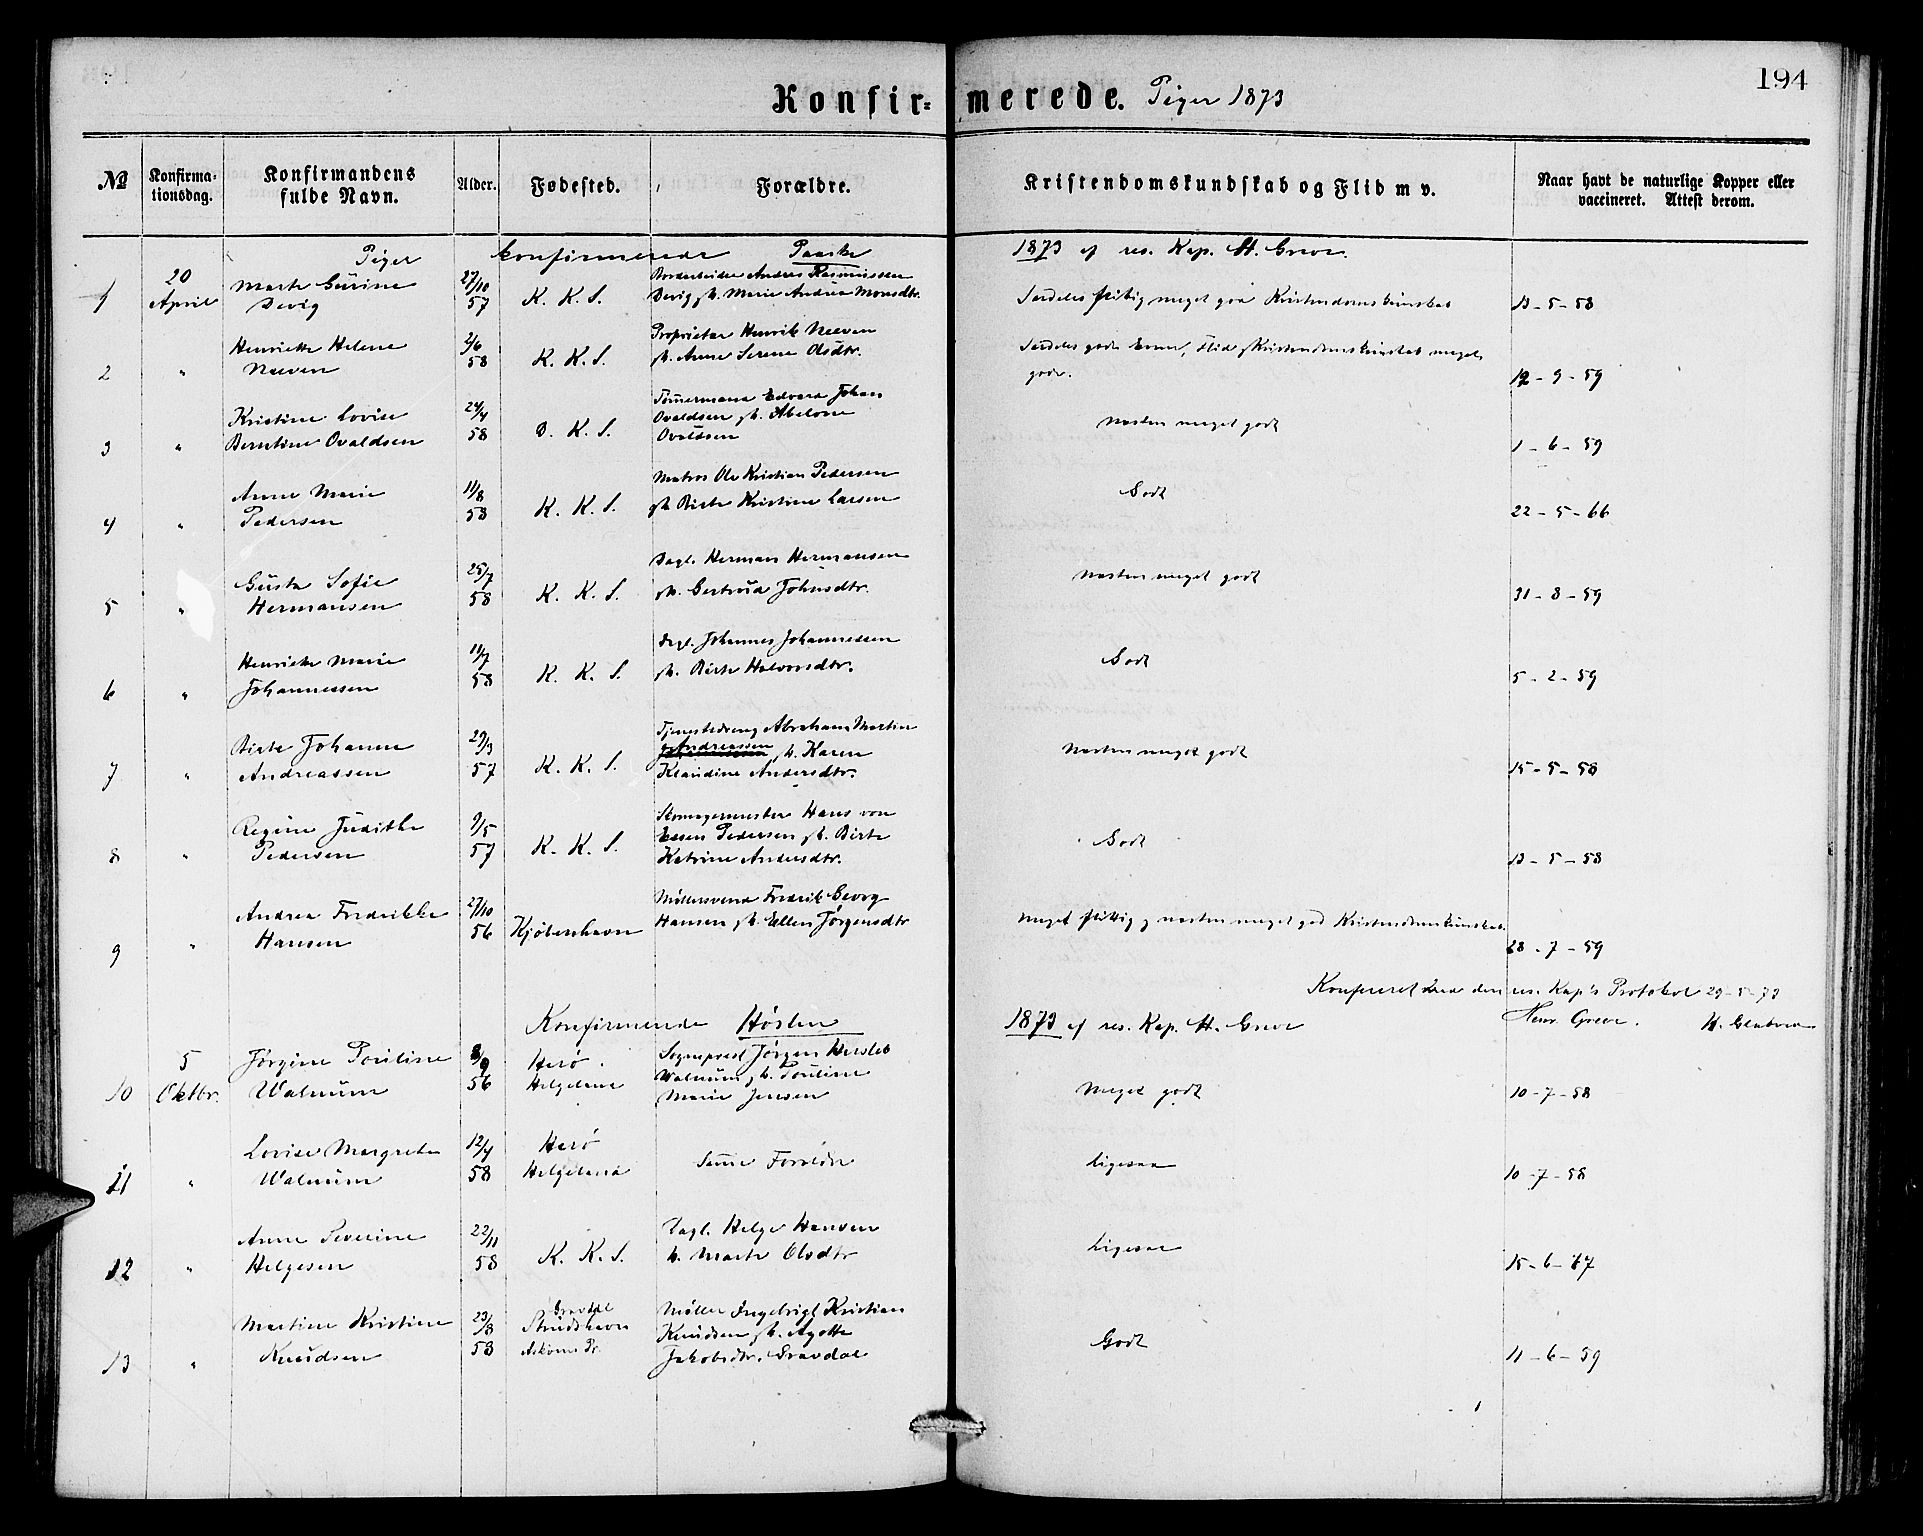 194
Konfir= merede. Piger 1873
No
Konfirma-
tionsdag.
Konfirmandens
fulde Navn.
Alder.
Fødested.
Forældre.
Kristendomskundskab og Flid m v.
Naar havt de naturlige Kopper eller
vaccineret. Attest derom.
Piger konfirmerede Paaske 1873 af res. Kap. H. Greve.
1
20
April
Marte Gurine
Devig
27/10
57
K. K. S.
Andreas Rasmussen
Devig h. Marie Andrea Monsdtr.
Serdeles flittig meget god Kristendomskundskab
13-5-58
2 "
Henriette Helene
Neeven
2/6
58
K. K. S.
Proprietær Henrik Neeven
h. Anne Serene Olsdtr.
Serdeles gode Evner, Flid Kristendomskundskab meget
gode.
12-9-59
3 "
Kristine Lovise
Berntine Ovaldsen
24/4
58
D. K. S.
Tømermand Edvard Johan
Ovaldsen h. Abelone
Ovaldsen
Nesten meget godt
1-6-59
4 "
Anne Marie
Pedersen
11/8
58
K. K. S.
Matros Ole Kristian Pedersen
h. Birte Kristine Larsen
Godt
22-5-66
5 "
Gusta Sofie
Hermansen
25/7
58
K. K. S.
Dagl. Herman Hermansen
h. Gertrud Johnsdtr.
Nesten meget godt
31-8-59
6 "
Henriette Marie
Johannessen
11/7
58
K. K. S.
Dagl. Johannes Johannessen
h. Birte Halvorsdtr.
Godt
5-2-59
7 "
Birte Johanne
Andreassen
29/3
57
K. K. S.
Tjenestedreng Abraham Martin
Andreassen h. Karen
Klaudine Andersdtr.
Nesten meget godt
15-5-58
8 "
Regine Judithe
Pedersen
9/5
57
K. K. S.
Skomagermester Hans von
Essen Pedersen h. Birte
Katrine Andersdtr.
Godt
13-5-58
9 "
Andrea Fredrikke
Hansen
27/10
56
Kjøbenhavn
Møllersvend Fredrik Georg
Hansen h. Ellen Jørgensdtr
Meget flittig g nesten meget god Kristendomskundskab.
28-7-59
Konfereret med den res. Kap's Protokol 29-5-73
Henr. Greve. H.
Konfirmerede Høsten 1873 af res. Kap. H. Greve
10
5
Oktbr.
Jørgine Pouline
Walnum
8/9
56
Herø
Helgeland
Sogneprest Jørgen Hersleb
Walnum h. Pouline
Marie Jensen
Meget godt
10-7-58
11 "
Lovise Margrete
Walnum
12/4
58
Herø
Helgeland
Same Foreldre
Ligesaa
10-7-58
12 "
Anne Severine
Helgesen
22/11
58
K. K. S.
Dagl. Helge Hansen
h. Marte Olsdtr
Ligesaa
15-6-67
13 "
Martine Kristine
Knudsen
23/8
58
Gravdal
Strudshavn
Askøens Pr.
Møller Ingebrigt Kristian
Knudsen h. Agatte
Jakobsdtr. Gravdal
Godt
11-6-59